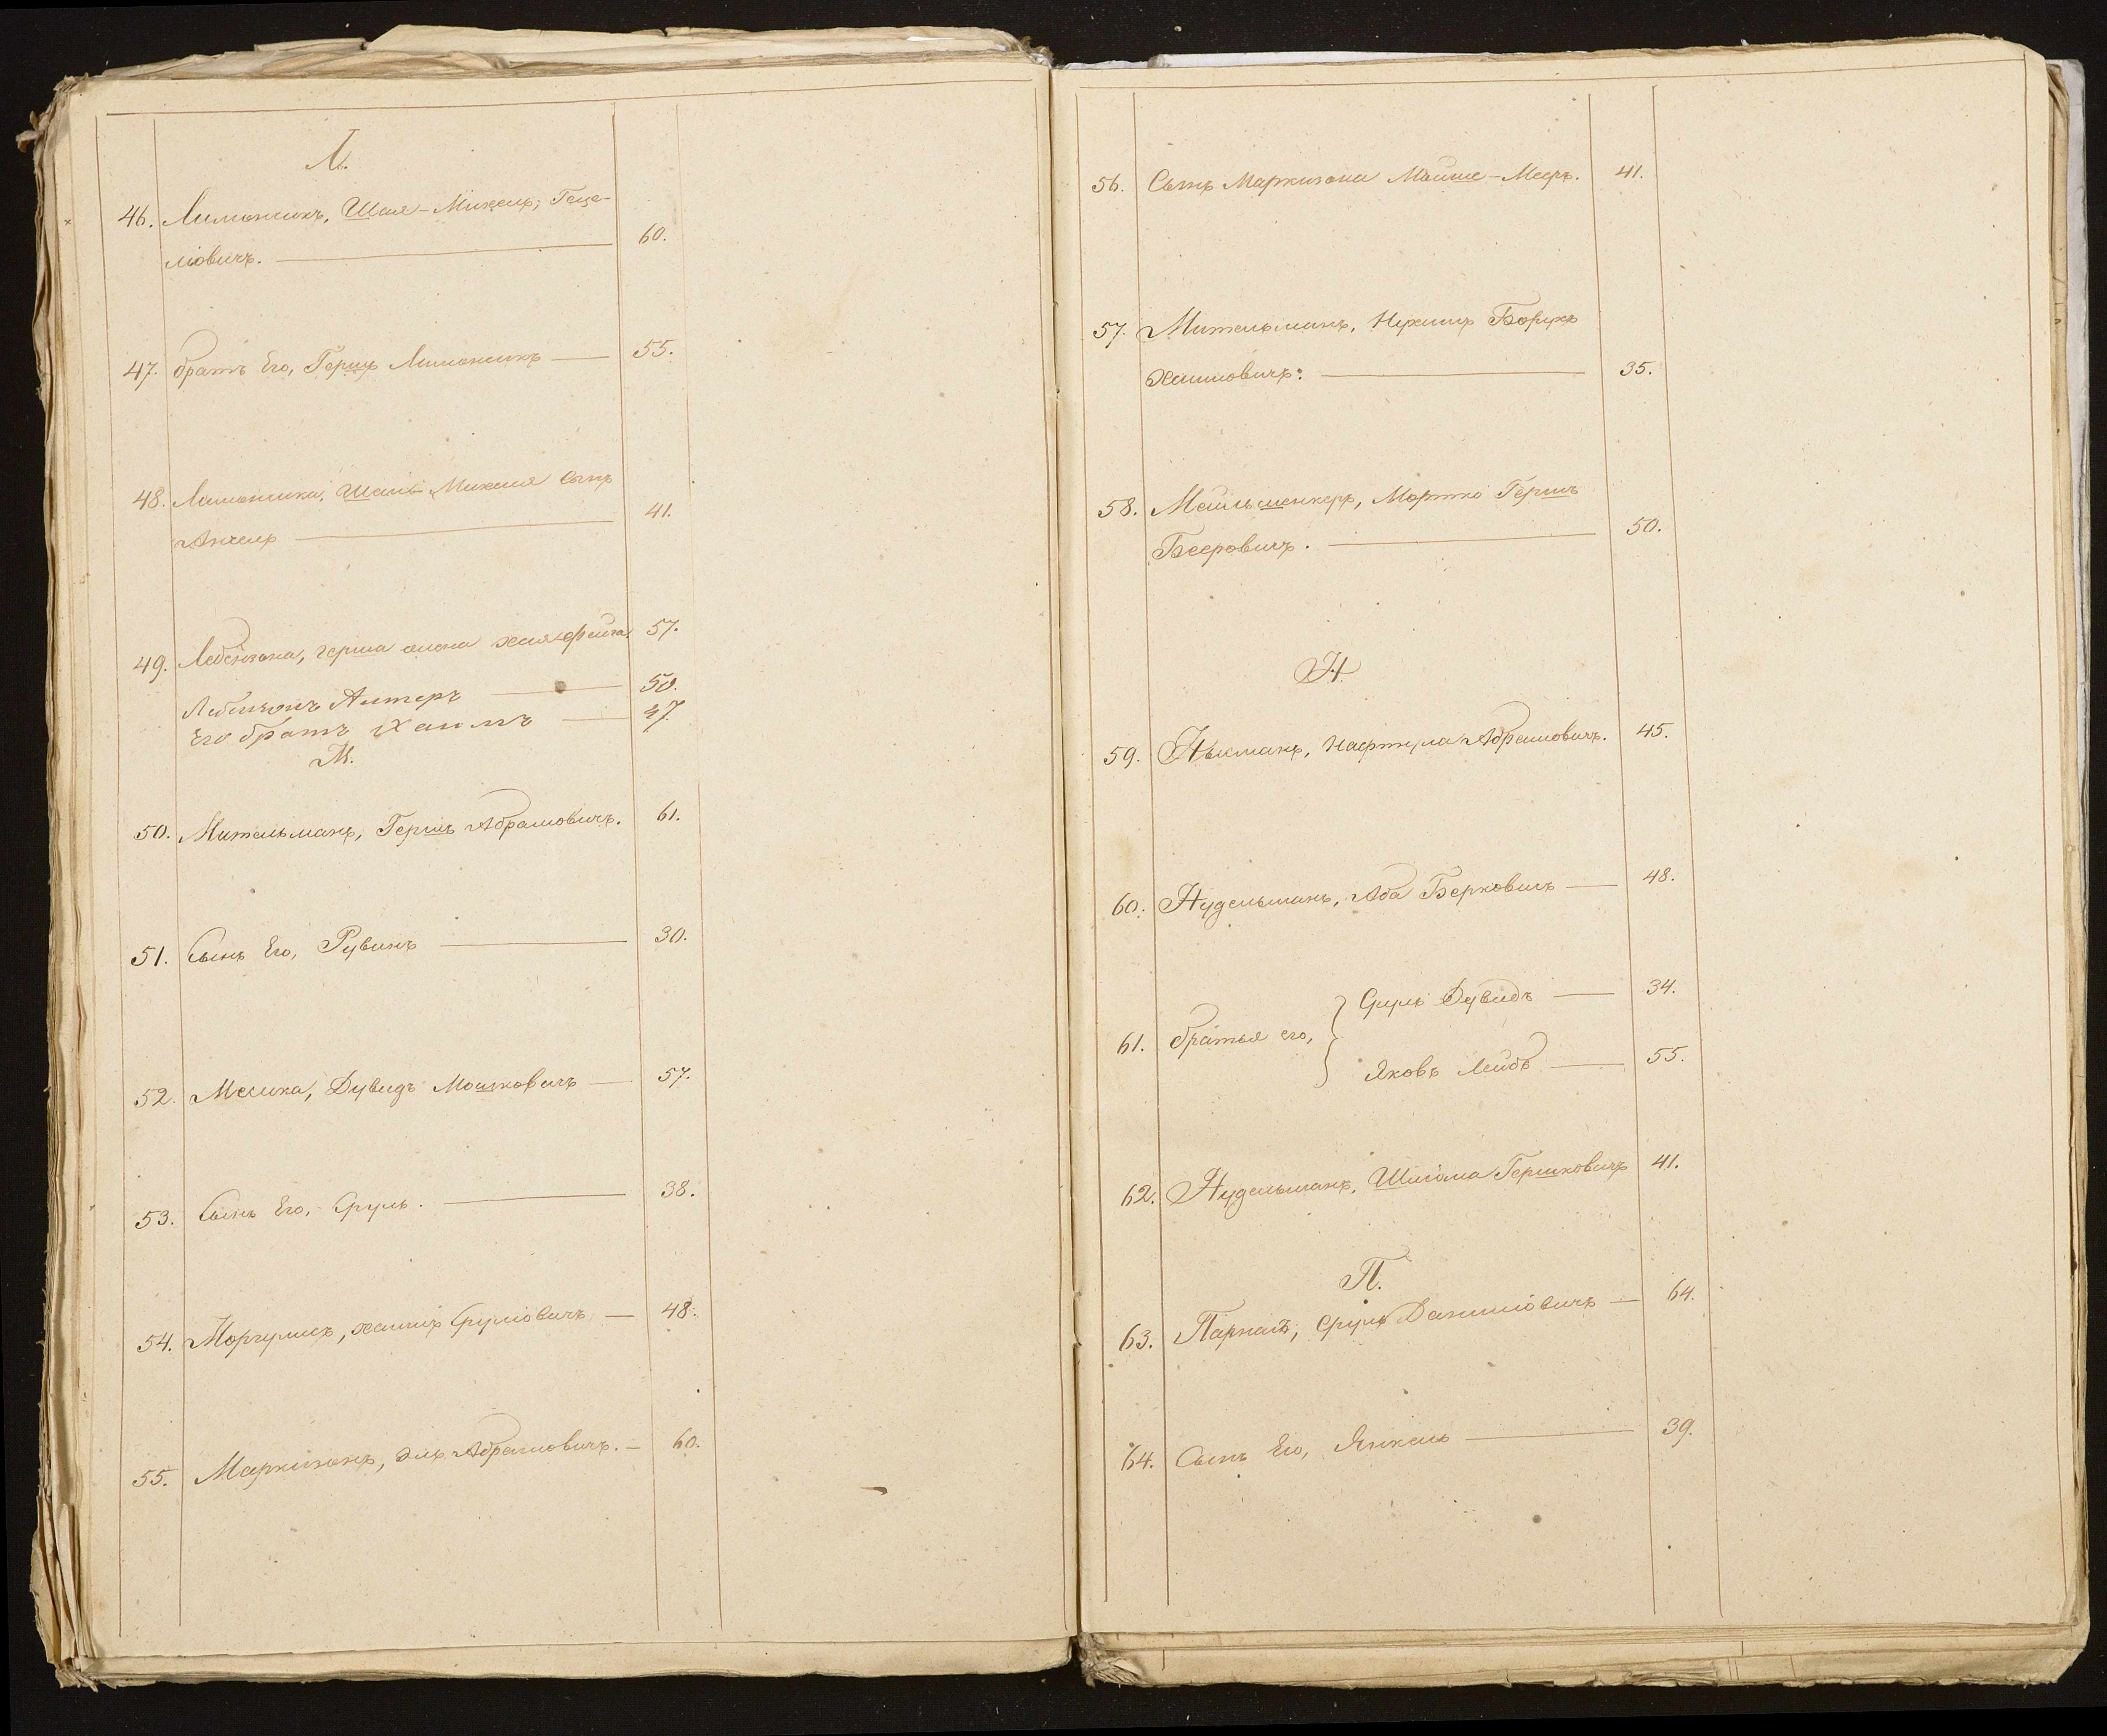 Л.
46. Лимоникъ, Шая-Михель, Геце-
ліовичъ. — 60.
47. братъ Его, Гершъ Лимоникъ — 55.
48. Лимоника, Шаи-Михеля Сынъ
Анчель — 41.
49. Лебензона, герша жена хая-фейга 57.
Лебензонъ Алтеръ — 50.
Его братъ Хаимъ — 47.
М.
50. Мительманъ, Гершъ Абрамовичъ. 61.
51. Сынъ Его, Рувинъ — 30.
52. Дувидъ Мошковичъ — 57.
53. Сынъ Его, Сруль. — 38.
54. Моргулисъ, хаимъ Сруліовичъ — 48.
55. Маркизонъ, Эль Абрамовичъ. — 60.
56. Сынъ Маркизона Мойше-Мееръ. 41.
57. Мительманъ, Нухимъ Борухъ
Хаимовичъ: — 35.
58. Мортко Гершъ
Бееровичъ. — 50.
Н.
59. Нафтула Абрамовичъ. 45.
60. Нудельманъ, Аба Берковичъ — 48.
61. братья его, Сруль Дувидъ — 34.
Яковъ Лейбъ — 55.
62. Нудельманъ, Шліома Гершковичъ 41.
П.
63. Сруль Даниліовичъ — 64.
64. Сынъ Его, Янкель — 39.